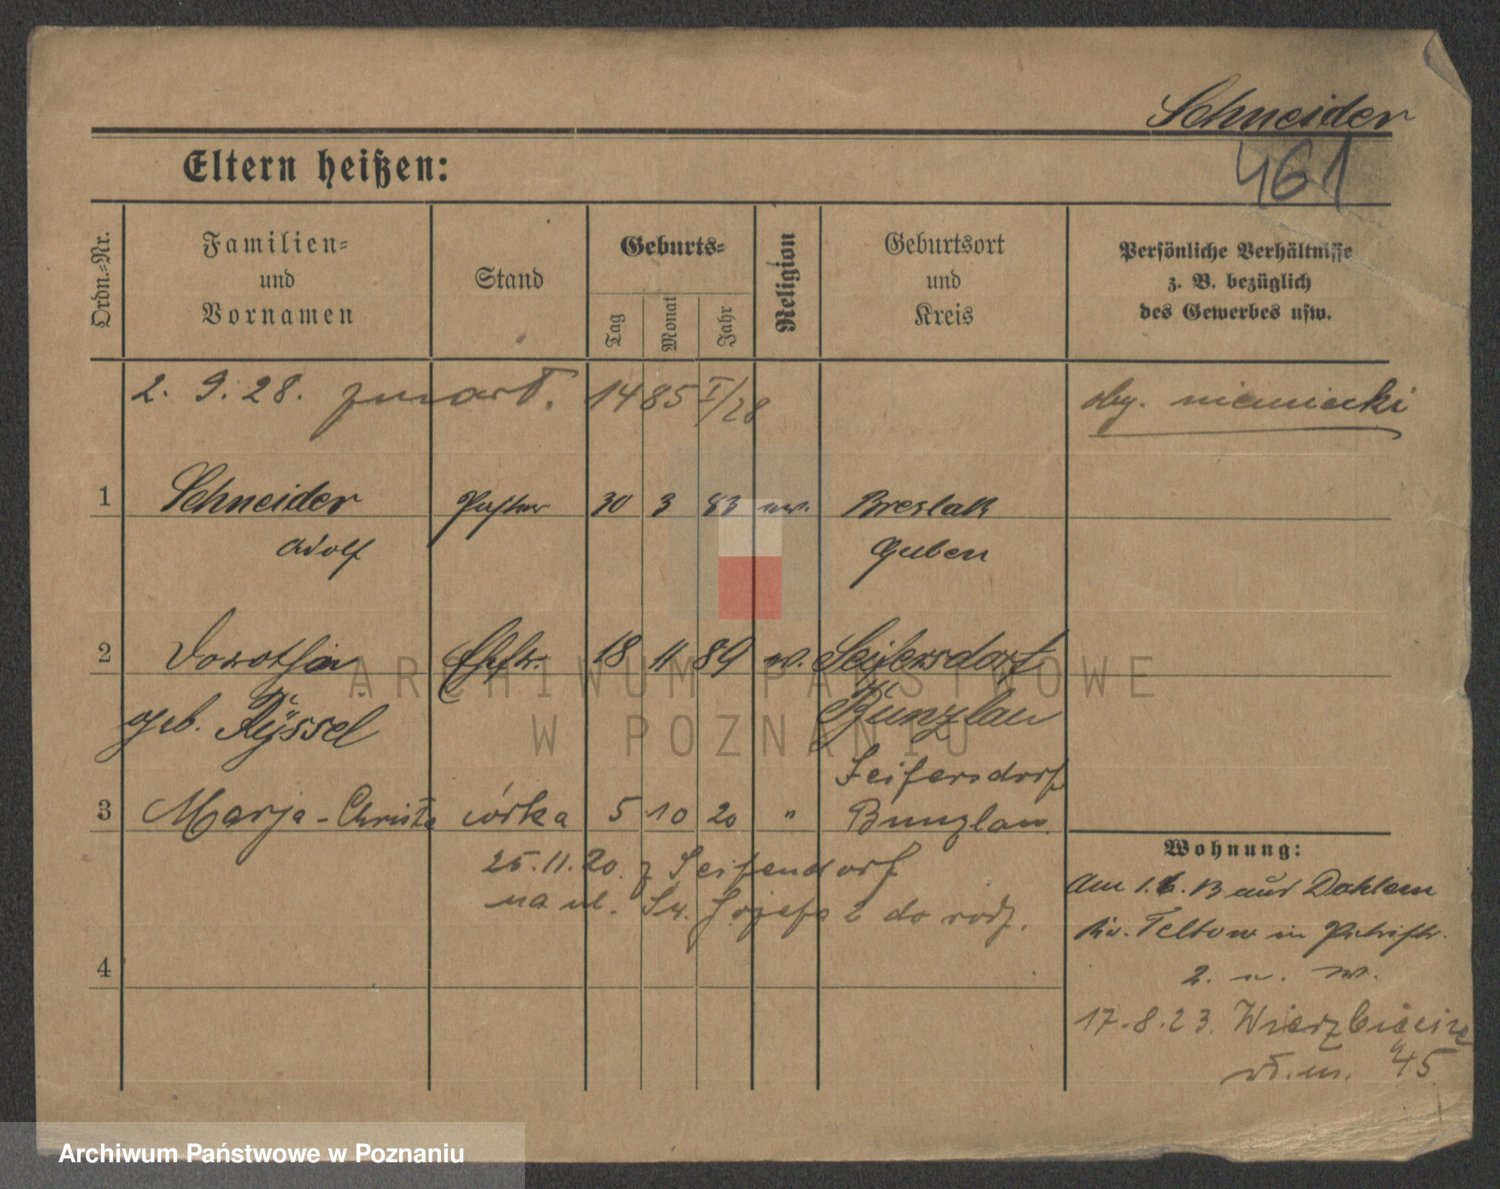 Schneider
461
Eltern heißen:
Ordn.=Nr.
Familien=
und
Vornamen
Stand
Geburts=
Tag
Monat
Jahr
Religion
Geburtsort
und
Kreis
Persönliche Verhältnisse
z. B. bezüglich
des Gewerbes usw.
2. 9. 28. 1485 I/28 oby. niemiecki
1 Schneider Pastor 30 3 83 ew. Breslak
Adolf Guben
2 Dorothea Ehefr. 18 11 89 w. Seifersdorf
geb. Ryssel Bunzlau
Seifersdorf
3 Marja-Christa córka 5 10 20 " Bunzlau
25.11.20. z Seifendorf
na ul. Św. Józefa 2 do rodz.
4
Wohnung:
Am 1.6.13 aus Dahlem
Kr. Teltow in
2. u. w.
17.8.23. Wierzbięcice
45
ARCHIWUM PAŃSTWOWE
W POZNANIU
Archiwum Państwowe w Poznaniu